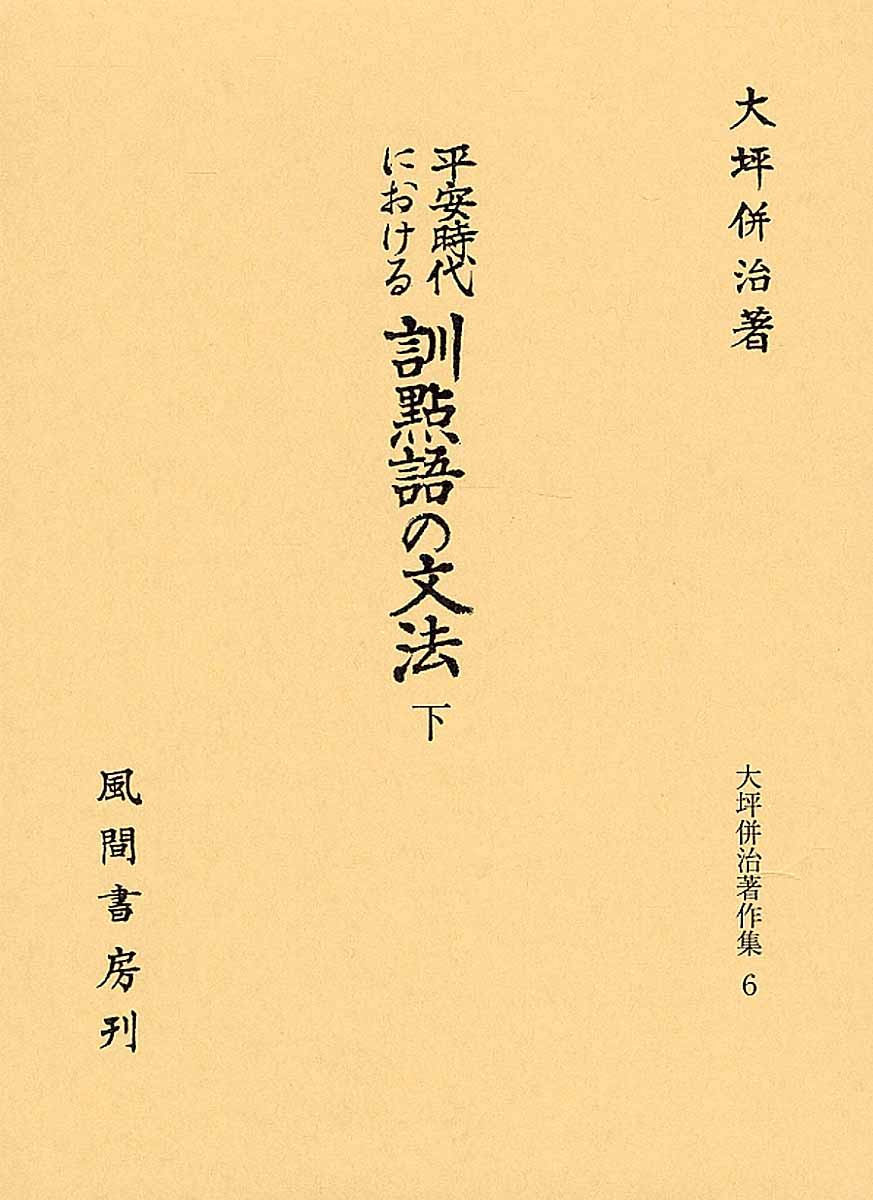 大坪併治著
平安時代
における
訓點語の文法 下
大坪併治著作集 6
風間書房刊